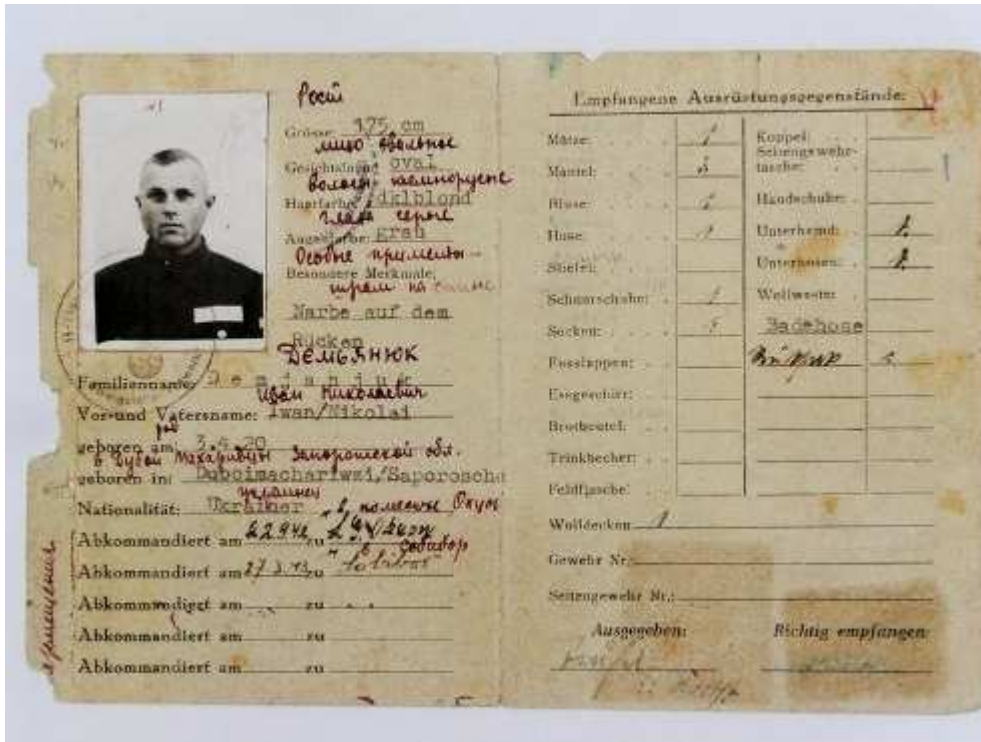 Рост
Grösse: 175 cm
лицо овальное
Gesichtsform: oval
волосы темнорусые
Haarfarbe: dklblond
глаза серые
Augenfarbe: grau
Особые приметы –
Besondere Merkmale:
шрам на спине
Narbe auf dem
Rücken
ДЕМЬЯНЮК
Familienname: Demjanjuk
Иван Николаевич
Vor-und Vatersname: Iwan/Nikolai
род
geboren am: 3.4.20
в Запорожской обл.
geboren in: Duboimachariwzi/Saporosche
украинец
Nationalität: Ukrainer
в поместье Окзов
Abkommandiert am 22.9.42 zu L.G. Okzow
в Собибор
Abkommandiert am 27.3.43 zu Sobibor
Abkommandiert am zu
Abkommandiert am zu
Abkommandiert am zu
Empfangene Ausrüstungsgegenstände:
Mütze: 1
Mantel: 1
Bluse: 1
Hose: 1
Stiefel:
Schnürschuhe: 1
Socken:
Fusslappen:
Essgeschirr:
Brotbeutel:
Trinkbecher:
Feldflasche:
Wolldecken: 1
Gewehr Nr.
Seitengewehr Nr.:
Koppel:
Seitengewehr-
tasche:
Handschuhe:
Unterhemd:
Unterhosen:
Wollweste:
Badehose
Ausgegeben: Richtig empfangen: